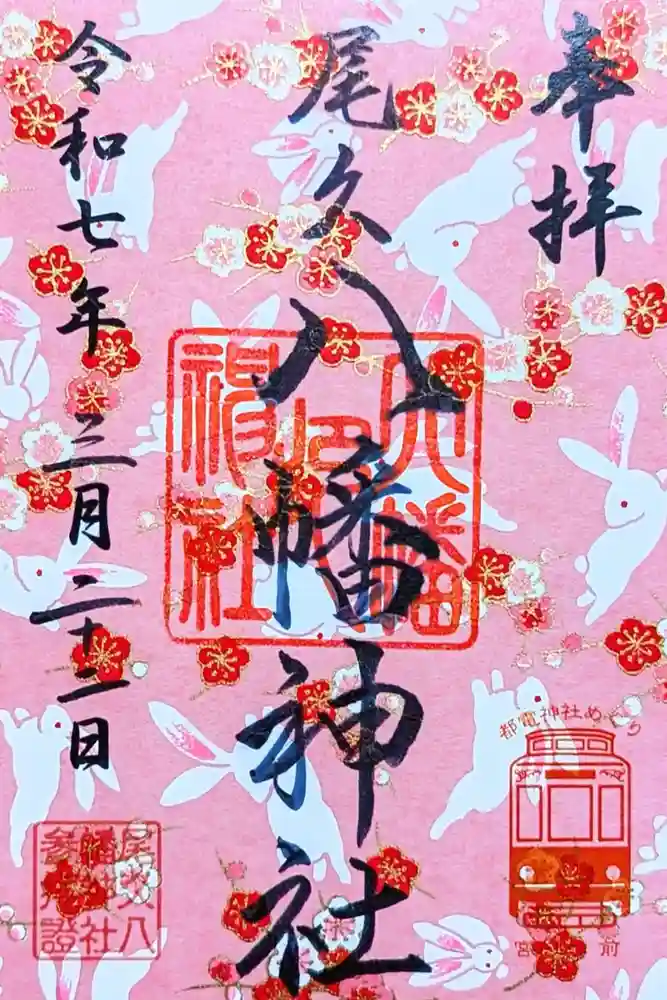 奉拝
尾久八幡神社
令和七年三月二十二日
八幡
神社
都電神社めぐり
宮前
尾久八
幡神社
参拝證